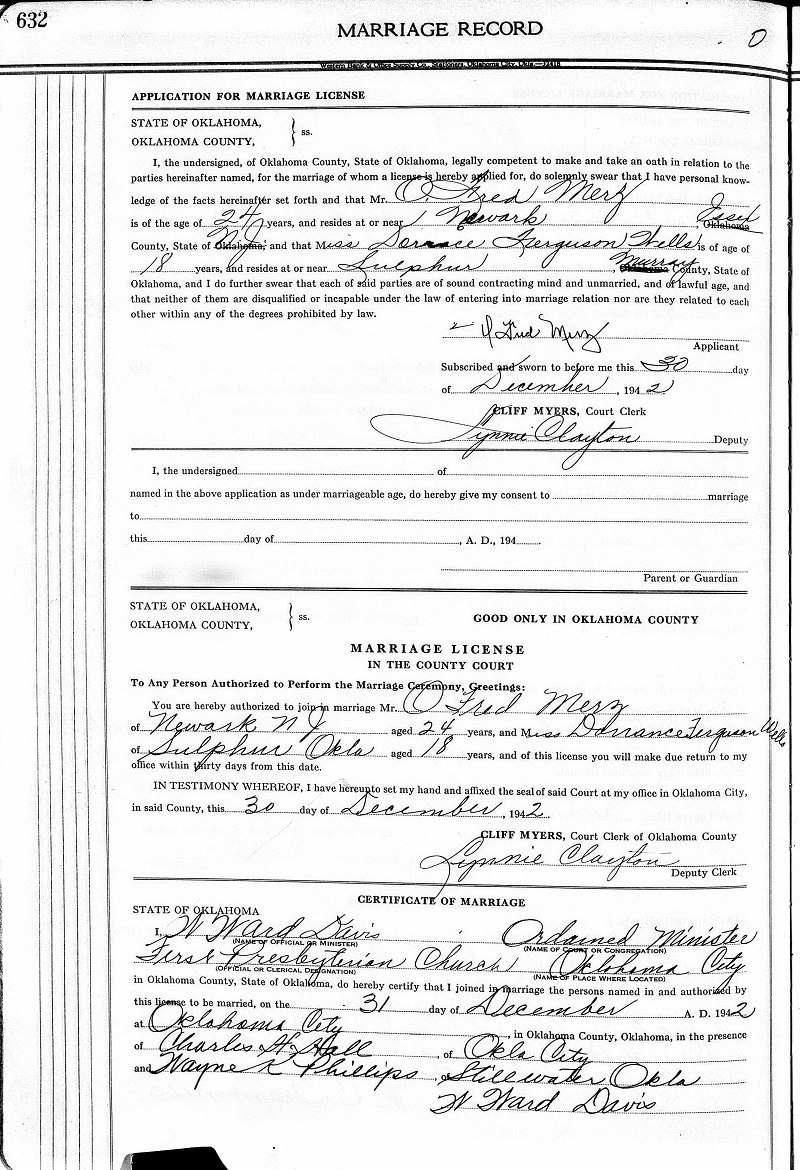 632
MARRIAGE RECORD
O
Western Bank & Office Supply Co., Stationers, Oklahoma City, Okla.—
APPLICATION FOR MARRIAGE LICENSE
STATE OF OKLAHOMA,
OKLAHOMA COUNTY, } ss.
I, the undersigned, of Oklahoma County, State of Oklahoma, legally competent to make and take an oath in relation to the
parties hereinafter named, for the marriage of whom a license is hereby applied for, do solemnly swear that I have personal know-
ledge of the facts hereinafter set forth and that Mr. O. Fred Merz
is of the age of 24 years, and resides at or near Newark, Essex Oklahoma
County, State of N J Oklahoma; and that Miss Dorrance Ferguson Wells is of age of
18 years, and resides at or near Sulphur, Murray Oklahoma County, State of
Oklahoma, and I do further swear that each of said parties are of sound contracting mind and unmarried, and of lawful age, and
that neither of them are disqualified or incapable under the law of entering into marriage relation nor are they related to each
other within any of the degrees prohibited by law.
O Fred Merz
Applicant
Subscribed and sworn to before me this 30 day
of December, 1942
CLIFF MYERS, Court Clerk
Lynnie Clayton Deputy
I, the undersigned of
named in the above application as under marriageable age, do hereby give my consent to marriage
to
this day of , A. D., 194
Parent or Guardian
STATE OF OKLAHOMA,
OKLAHOMA COUNTY, } ss.
GOOD ONLY IN OKLAHOMA COUNTY
MARRIAGE LICENSE
IN THE COUNTY COURT
To Any Person Authorized to Perform the Marriage Ceremony, Greetings:
You are hereby authorized to join in marriage Mr. O Fred Merz
of Newark N J aged 24 years, and Miss Dorrance Ferguson Wells
of Sulphur Okla aged 18 years, and of this license you will make due return to my
office within thirty days from this date.
IN TESTIMONY WHEREOF, I have hereunto set my hand and affixed the seal of said Court at my office in Oklahoma City,
in said County, this 30 day of December, 1942.
CLIFF MYERS, Court Clerk of Oklahoma County
Lynnie Clayton
Deputy Clerk
CERTIFICATE OF MARRIAGE
STATE OF OKLAHOMA
I, W Ward Davis Ordained Minister
(NAME OF OFFICIAL OR MINISTER) (NAME OF COURT OR CONGREGATION)
First Presbyterian Church Oklahoma City
(OFFICIAL OR CLERICAL DESIGNATION) (NAME OF PLACE WHERE LOCATED)
in Oklahoma County, State of Oklahoma, do hereby certify that I joined in marriage the persons named in and authorized by
this license to be married, on the 31 day of December A. D. 1942
at Oklahoma City, in Oklahoma County, Oklahoma, in the presence
of Charles H. Hall, of Okla City
and Wayne K Phillips, of Stillwater, Okla
W Ward Davis